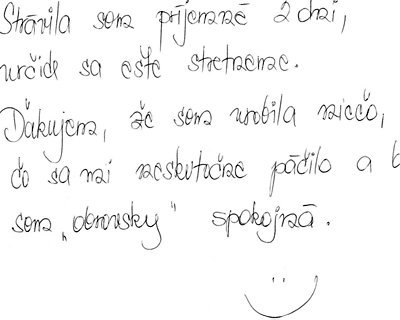 Strávila som príjemné 2 dni,
určite sa ešte stretneme.
Ďakujem, že som urobila niečo,
čo sa mi neskutočne páčilo a b
som „obrovsky" spokojná.